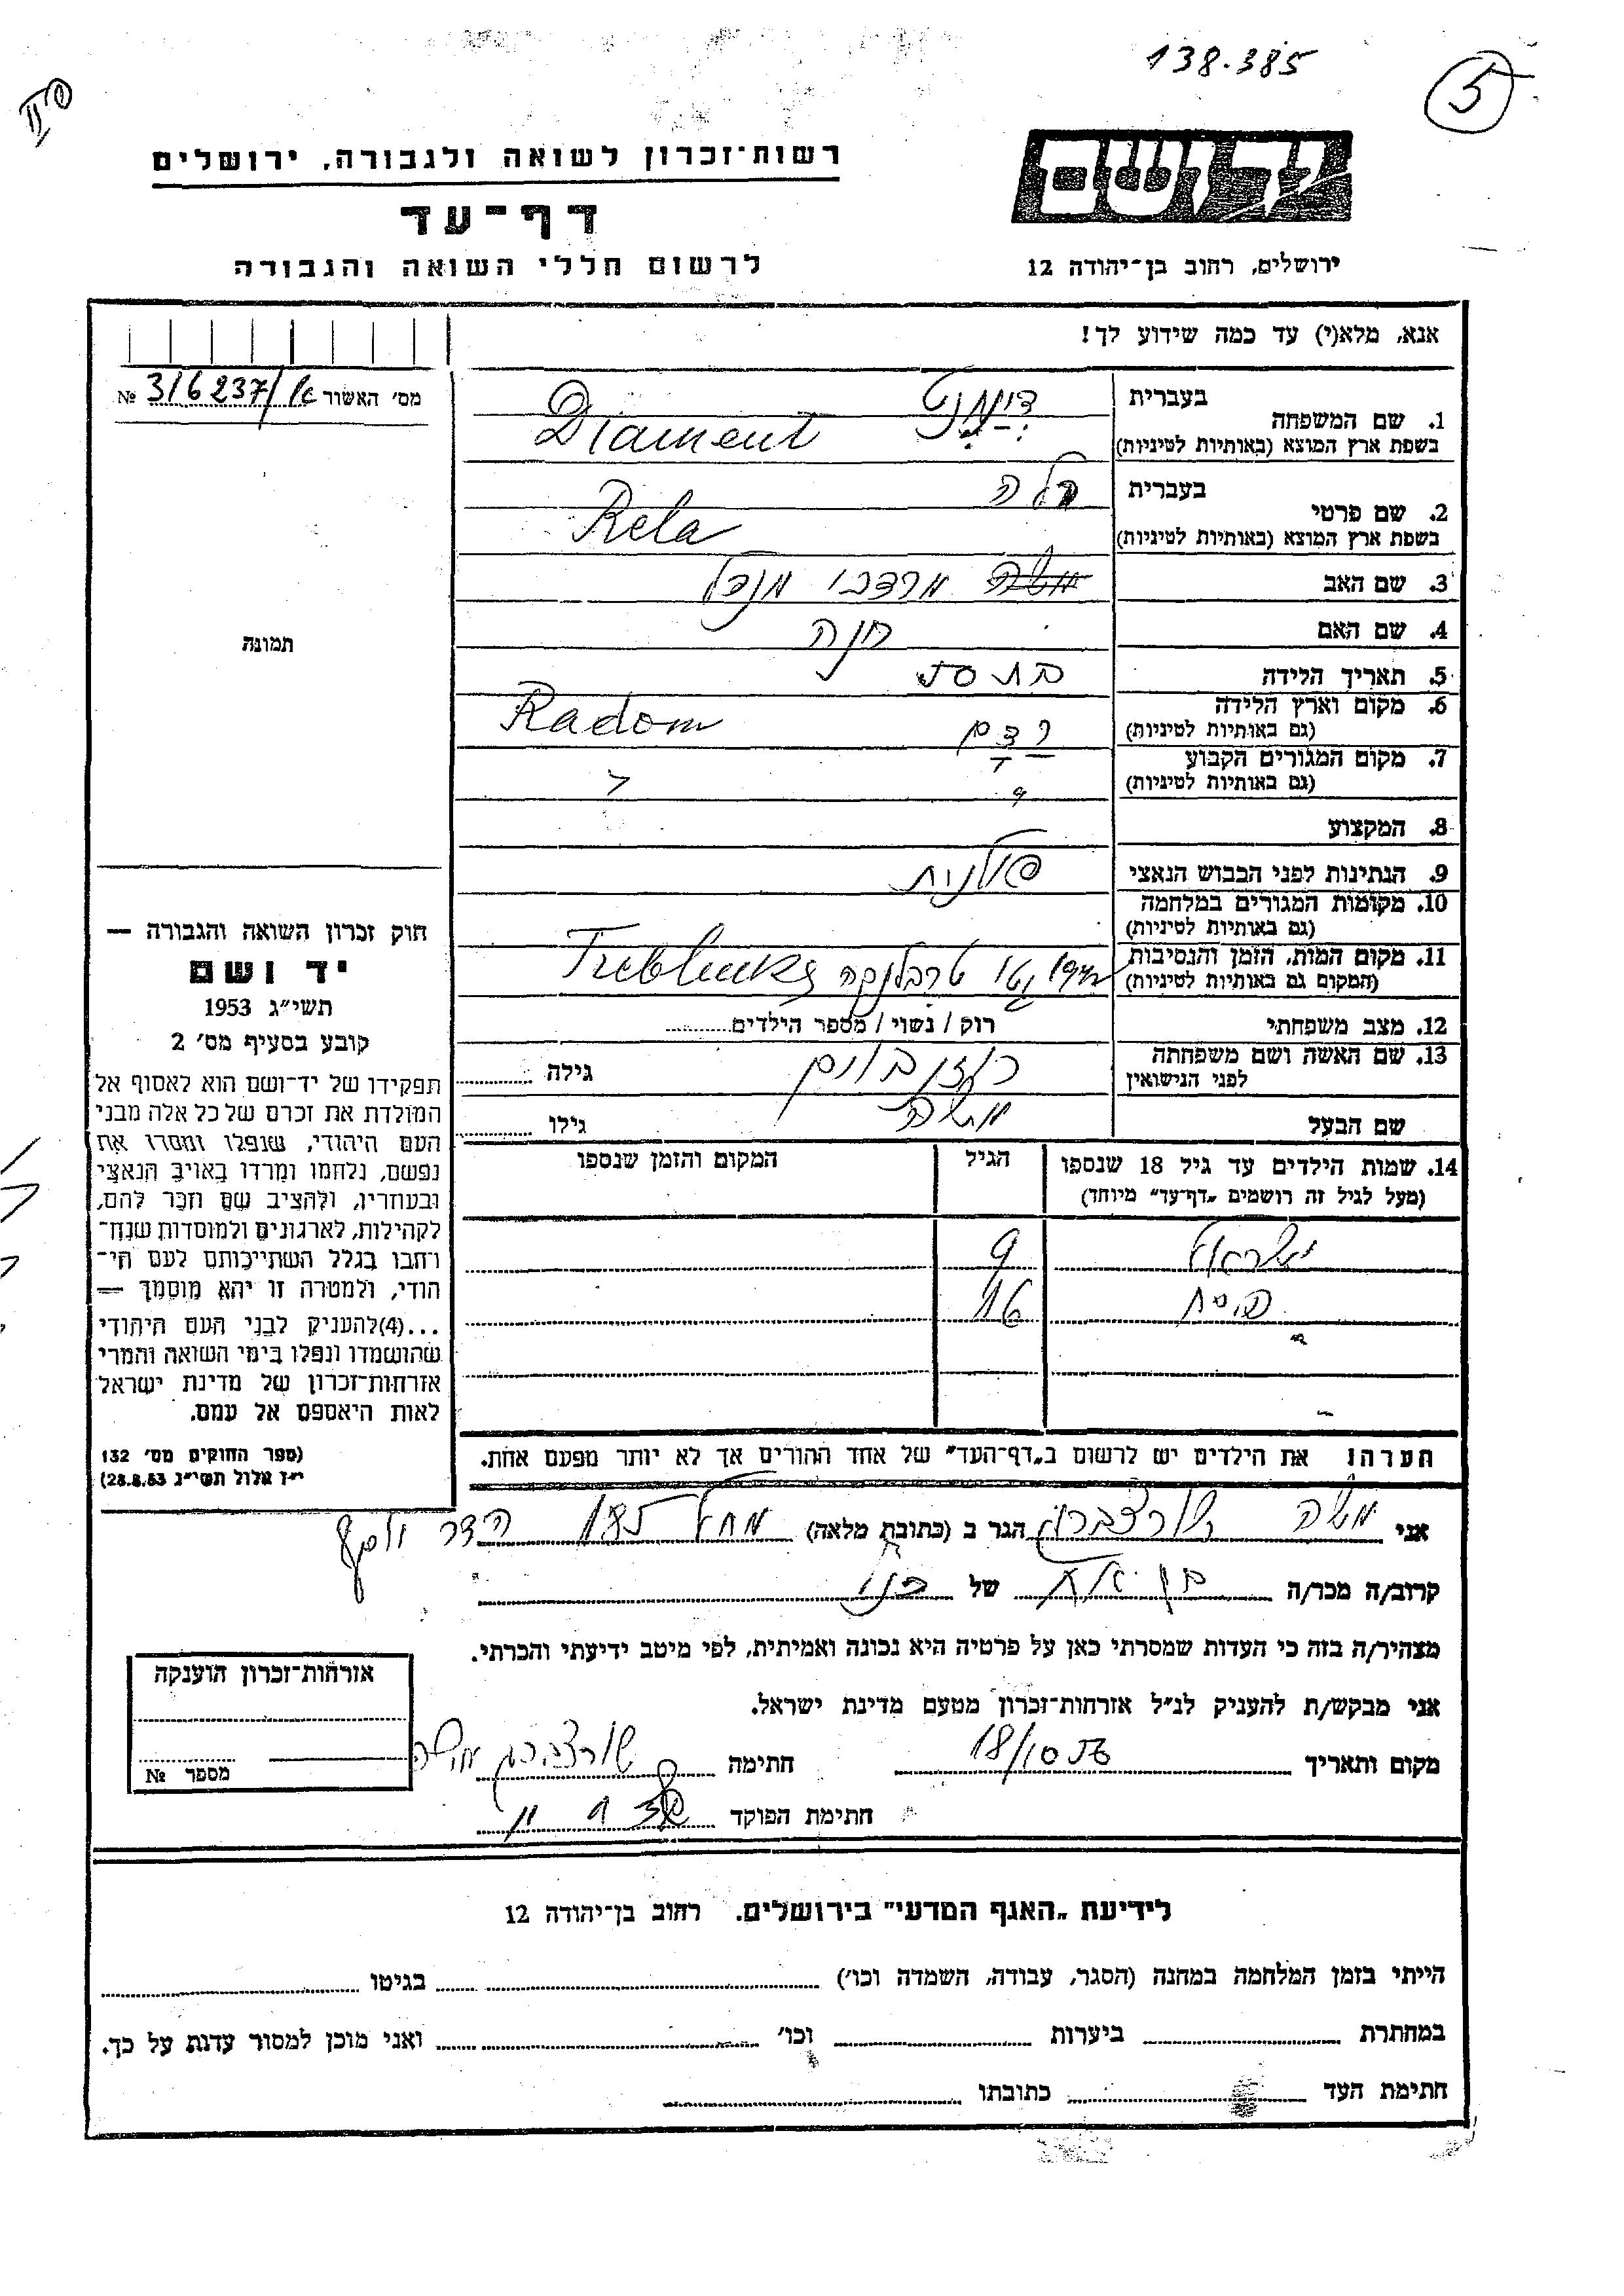 138.385
5
רשות־זכרון לשואה ולגבורה, ירושלים
יד ושם
דף־עד
לרשום חללי השואה והגבורה
ירושלים, רחוב בן־יהודה 12
אנא, מלא(י) עד כמה שידוע לך!
מס׳ האשור № 316237/
1. שם המשפחה
בעברית
בשפת ארץ המוצא (באותיות לטיניות)
Diament
2. שם פרטי
בעברית רלה
בשפת ארץ המוצא (באותיות לטיניות)
Rela
3. שם האב משה מרדכי מנדל
4. שם האם חנה
5. תאריך הלידה
6. מקום וארץ הלידה
(גם באותיות לטיניות)
רדם Radom
7. מקום המגורים הקבוע
(גם באותיות לטיניות)
8. המקצוע
9. הנתינות לפני הכבוש הנאצי פולנית
10. מקומות המגורים במלחמה
(גם באותיות לטיניות)
11. מקום המות, הזמן והנסיבות
(המקום גם באותיות לטיניות)
1942 טרבלינקה Treblinka
12. מצב משפחתי רוק / נשוי / מספר הילדים
13. שם האשה ושם משפחתה
לפני הנישואין
רוזנבוים גילה
שם הבעל משה גילו
14. שמות הילדים עד גיל 18 שנספו
(מעל לגיל זה רושמים „דף־עד״ מיוחד)
הגיל
המקום והזמן שנספו
ישראל 9
פסח 16
הערה! את הילדים יש לרשום ב„דף־העד״ של אחד ההורים אך לא יותר מפעם אחת.
תמונה
חוק זכרון השואה והגבורה —
יד ושם
תשי״ג 1953
קובע בסעיף מס׳ 2
תפקידו של יד־ושם הוא לאסוף אל
המולדת את זכרם של כל אלה מבני
העם היהודי, שנפלו ומסרו את
נפשם, נלחמו ומרדו באויב הנאצי
ובעוזריו, ולהציב שם וזכר להם,
לקהילות, לארגונים ולמוסדות שנח־
רחבו בגלל השתייכותם לעם הי־
הודי, ולמטרה זו יהא מוסמך —
...(4) להעניק לבני העם היהודי
שהושמדו ונפלו בימי השואה והמרי
אזרחות־זכרון של מדינת ישראל
לאות היאספם אל עמם.
(ספר החוקים מס׳ 132
י״ז אלול תשי״ג 28.8.53)
אני משה שורצברג הגר ב (כתובת מלאה)
קרוב/ה מכר/ה של
מצהיר/ה בזה כי העדות שמסרתי כאן על פרטיה היא נכונה ואמיתית, לפי מיטב ידיעתי והכרתי.
אני מבקש/ת להעניק לנ״ל אזרחות־זכרון מטעם מדינת ישראל.
מקום ותאריך 18/10 חתימה שורצברג משה
חתימת הפוקד
אזרחות־זכרון הוענקה
מספר №
לידיעת „האגף המדעי״ בירושלים. רחוב בן־יהודה 12
הייתי בזמן המלחמה במחנה (הסגר, עבודה, השמדה וכו׳) בגיטו
במחתרת ביערות וכו׳ ואני מוכן למסור עדות על כך.
חתימת העד כתובתו